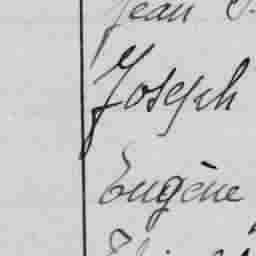 Jean
Joseph
Eugène